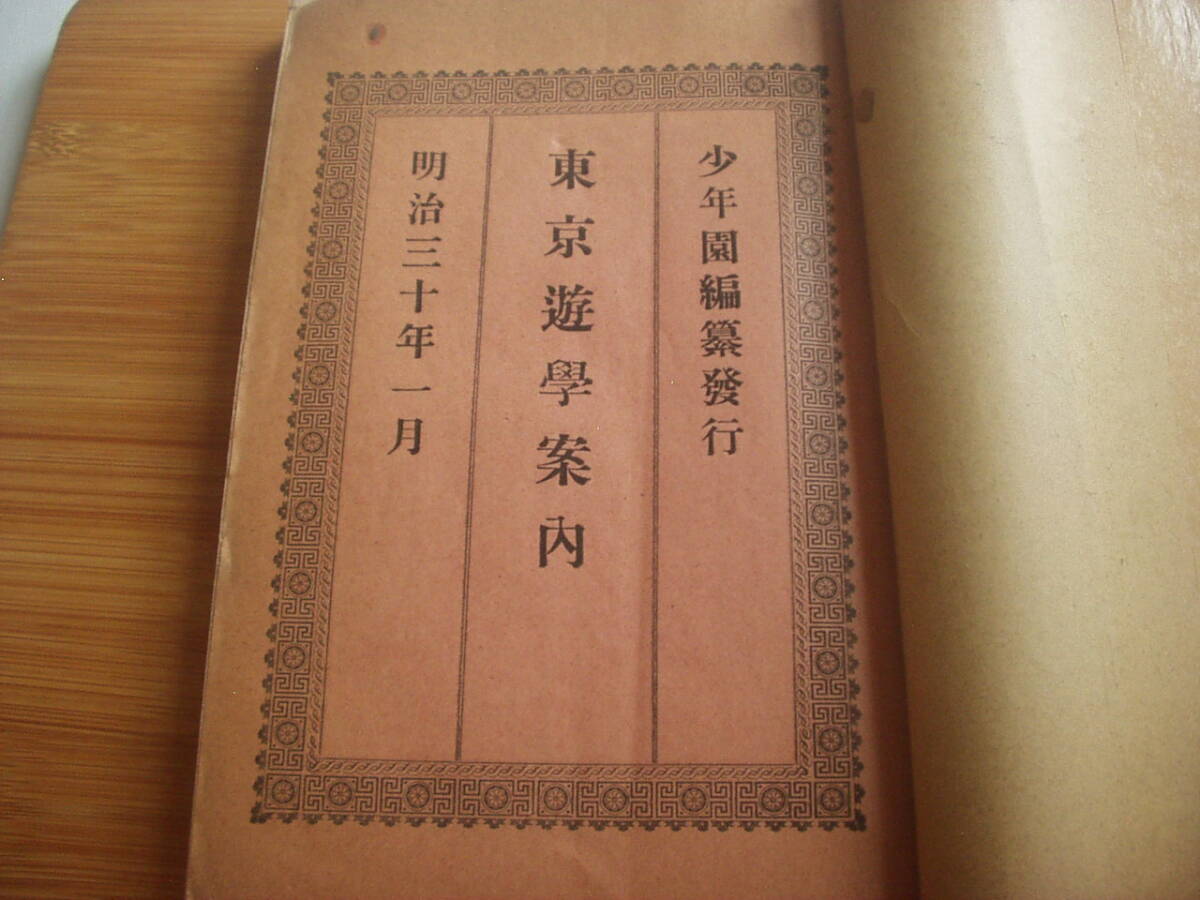 少年園編纂發行
東京遊學案內
明治三十年一月